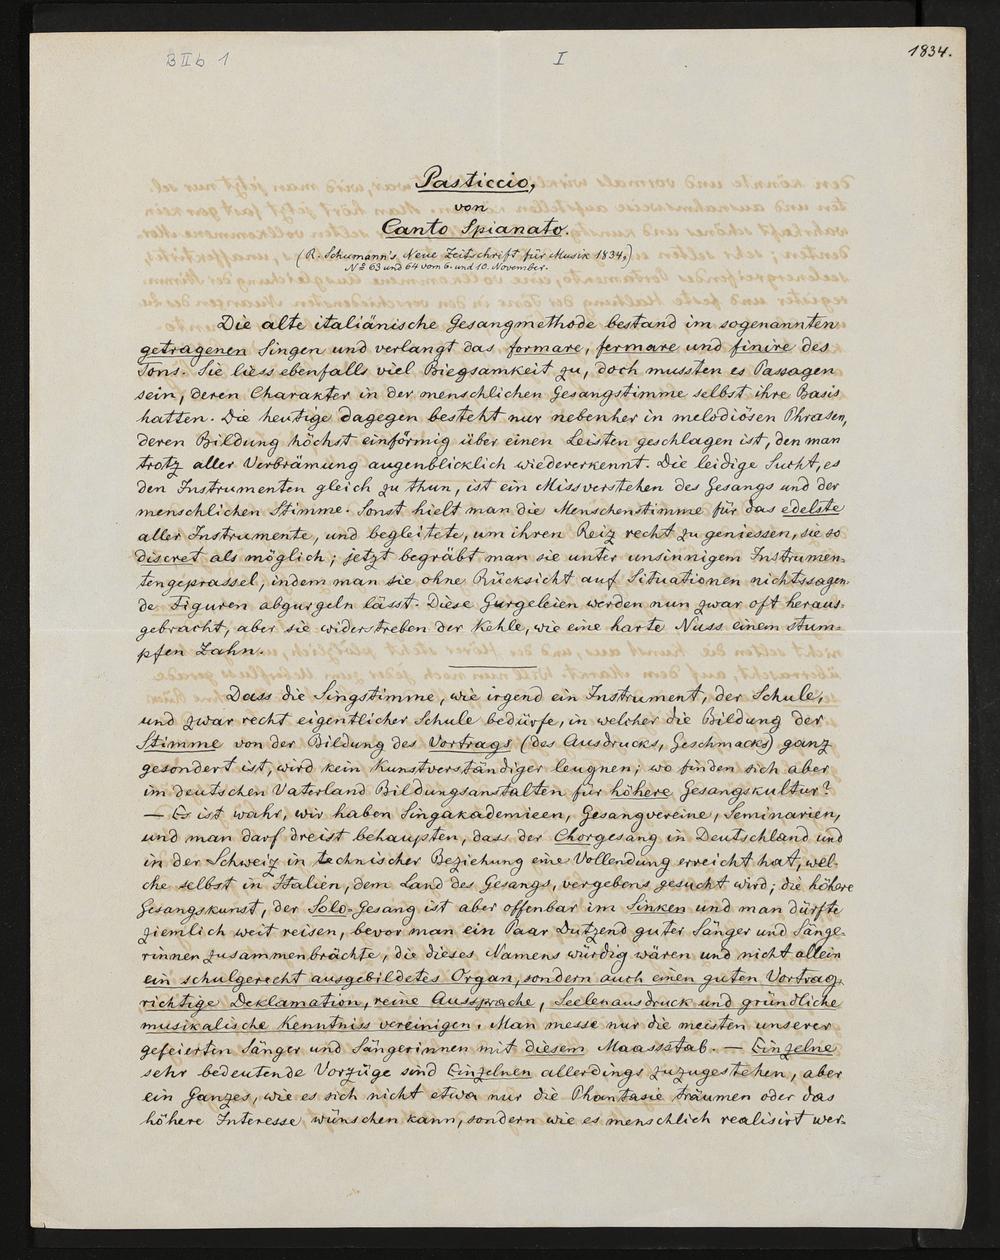 B II b 1
I
1834.
Pasticcio,
von
Canto Spianato.
(R. Schumann's Neue Zeitschrift für Musik 1834.)
No 63 und 64 vom 6. und 10. November.
Die alte italiänische Gesangmethode bestand im sogenannten
getragenen Singen und verlangt das formare, fermare und finire des
Tons. Sie liess ebenfalls viel Biegsamkeit zu, doch mussten es Passagen
sein, deren Charakter in der menschlichen Gesangstimme selbst ihre Basis
hatten. Die heutige dagegen besteht nur nebenher in melodiösen Phrasen,
deren Bildung höchst einförmig über einen Leisten geschlagen ist, den man
trotz aller Verbrämung augenblicklich wiedererkennt. Die leidige Sucht, es
den Instrumenten gleich zu thun, ist ein Missverstehen des Gesangs und der
menschlichen Stimme. Sonst hielt man die Menschenstimme für das edelste
aller Instrumente, und begleitete, um ihren Reiz recht zu geniessen, sie so
discret als möglich; jetzt begräbt man sie unter unsinnigem Instrumen-
tengeprassel, indem man sie ohne Rücksicht auf Situationen nichtssagen-
de Figuren abgurgeln lässt. Diese Gurgeleien werden nun zwar oft heraus-
gebracht, aber sie widerstreben der Kehle, wie eine harte Nuss einem stum-
pfen Zahn.
Dass die Singstimme, wie irgend ein Instrument, der Schule,
und zwar recht eigentlicher Schule bedürfe, in welcher die Bildung der
Stimme von der Bildung des Vortrags (des Ausdrucks, Geschmacks) ganz
gesondert ist, wird kein Kunstverständiger leugnen; wo finden sich aber
im deutschen Vaterland Bildungsanstalten für höhere Gesangskultur?
— Es ist wahr, wir haben Singakademieen, Gesangvereine, Seminarien,
und man darf dreist behaupten, dass der Chorgesang in Deutschland und
in der Schweiz in technischer Beziehung eine Vollendung erreicht hat, wel-
che selbst in Italien, dem Land des Gesangs, vergebens gesucht wird; die höhere
Gesangskunst, der Solo-Gesang ist aber offenbar im Sinken und man dürfte
ziemlich weit reisen, bevor man ein Paar Dutzend guter Sänger und Sänge-
rinnen zusammenbrächte, die dieses Namens würdig wären und nicht allein
ein schulgerecht ausgebildetes Organ, sondern auch einen guten Vortrag,
richtige Deklamation, reine Aussprache, Seelenausdruck und gründliche
musikalische Kenntniss vereinigen. Man messe nur die meisten unserer
gefeierten Sänger und Sängerinnen mit diesem Maassstab. — Einzelne
sehr bedeutende Vorzüge sind Einzelnen allerdings zuzugestehen, aber
ein Ganzes, wie es sich nicht etwa nur die Phantasie träumen oder das
höhere Interesse wünschen kann, sondern wie es menschlich realisirt wer-